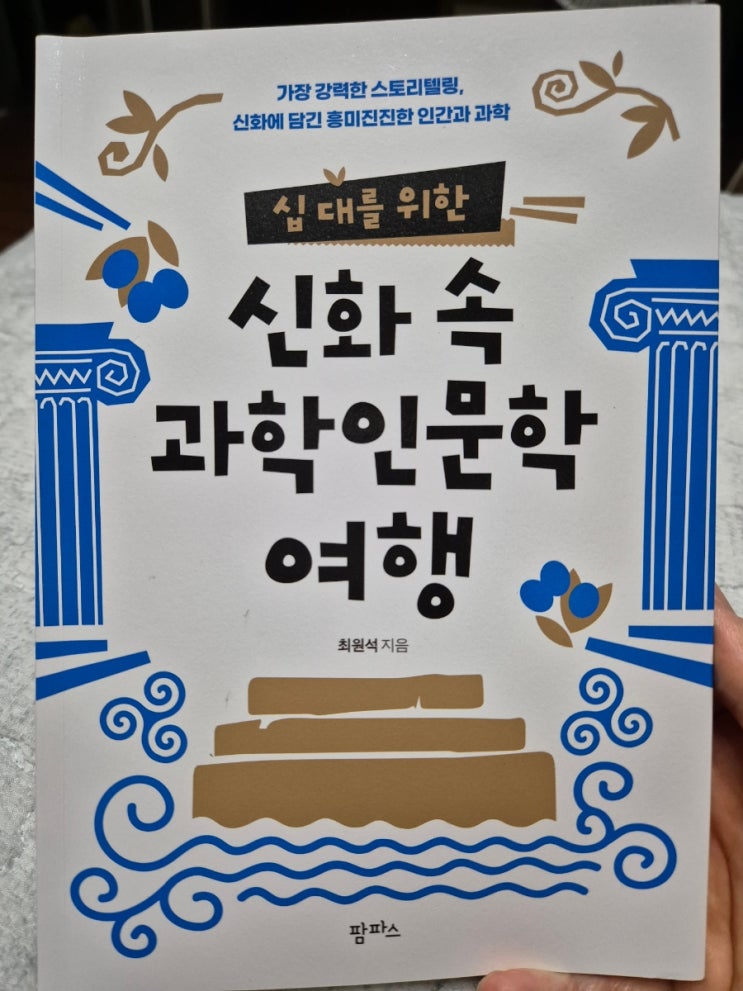 가장 강력한 스토리텔링,
신화에 담긴 흥미진진한 인간과 과학
십 대를 위한
신화 속
과학인문학
여행
최원석 지음
팜파스